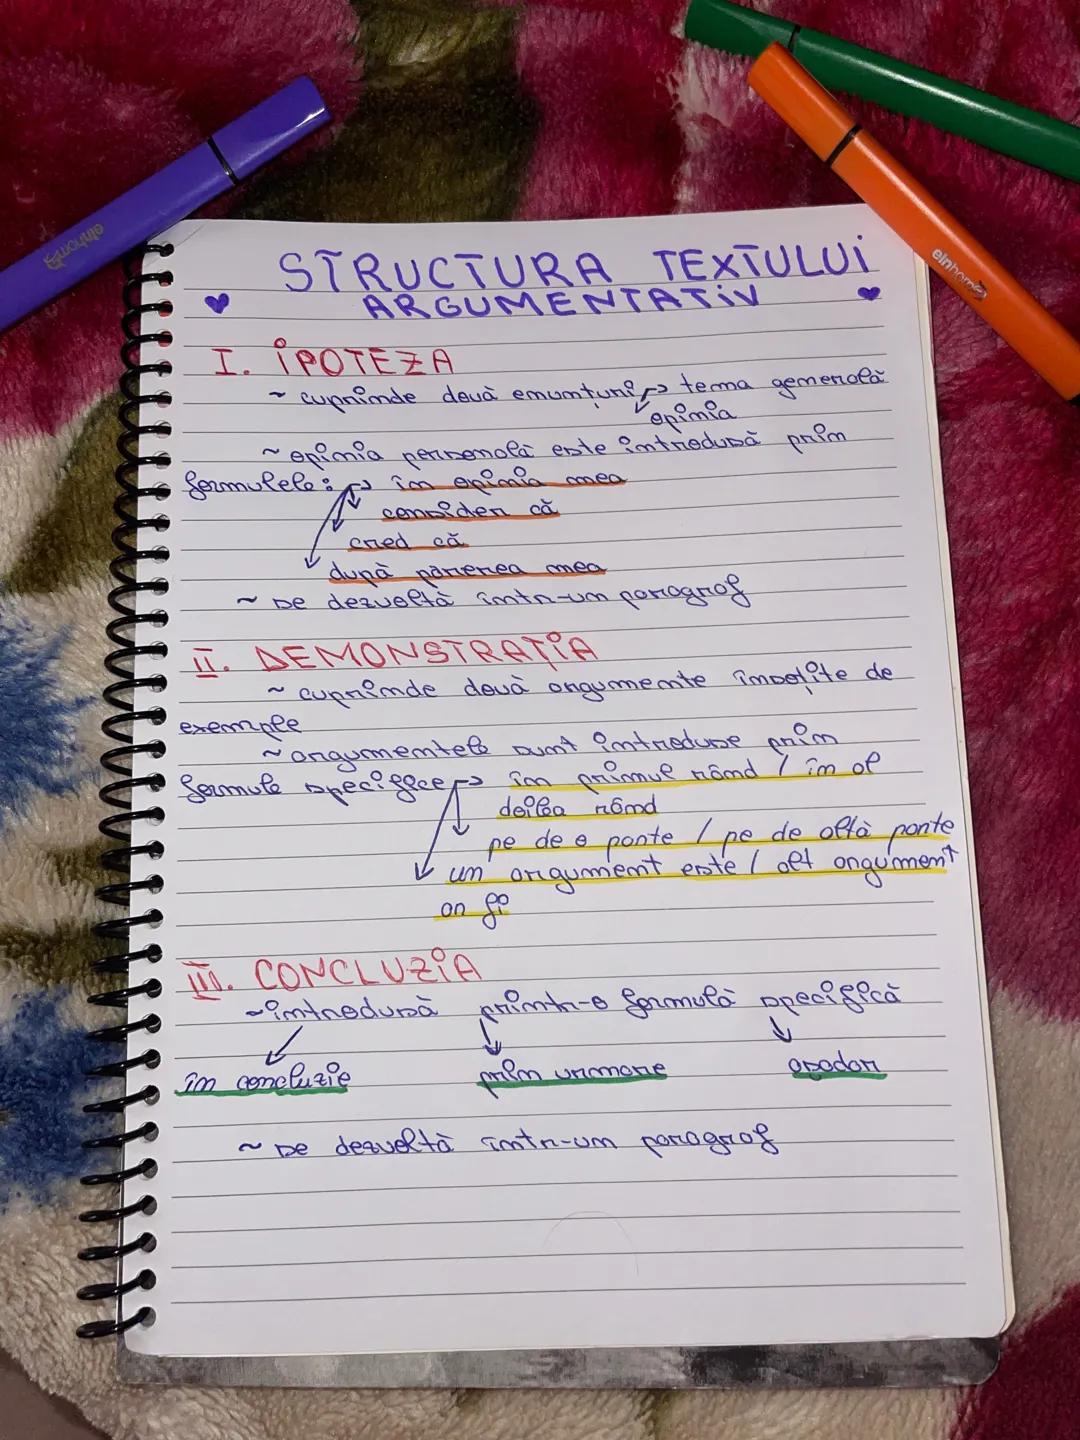 STRUCTURA TEXTULUI
ARGUMENTATIV
I. IPOTEZA
~ cuprinde două enunțuri → tema generală
opinia
~ opinia personală este introdusă prin
formulele: → în opinia mea
consider că
cred că
după părerea mea
~ se dezvoltă într-un paragraf
II. DEMONSTRAȚIA
~ cuprinde două argumente însoțite de
exemple
~ argumentele sunt introduse prin
formule specifice → în primul rând / în al
doilea rând
pe de o parte / pe de altă parte
un argument este / alt argument
ar fi
III. CONCLUZIA
~ introdusă printr-o formulă specifică
în concluzie prin urmare așadar
~ se dezvoltă într-un paragraf
einhorn
einhorn